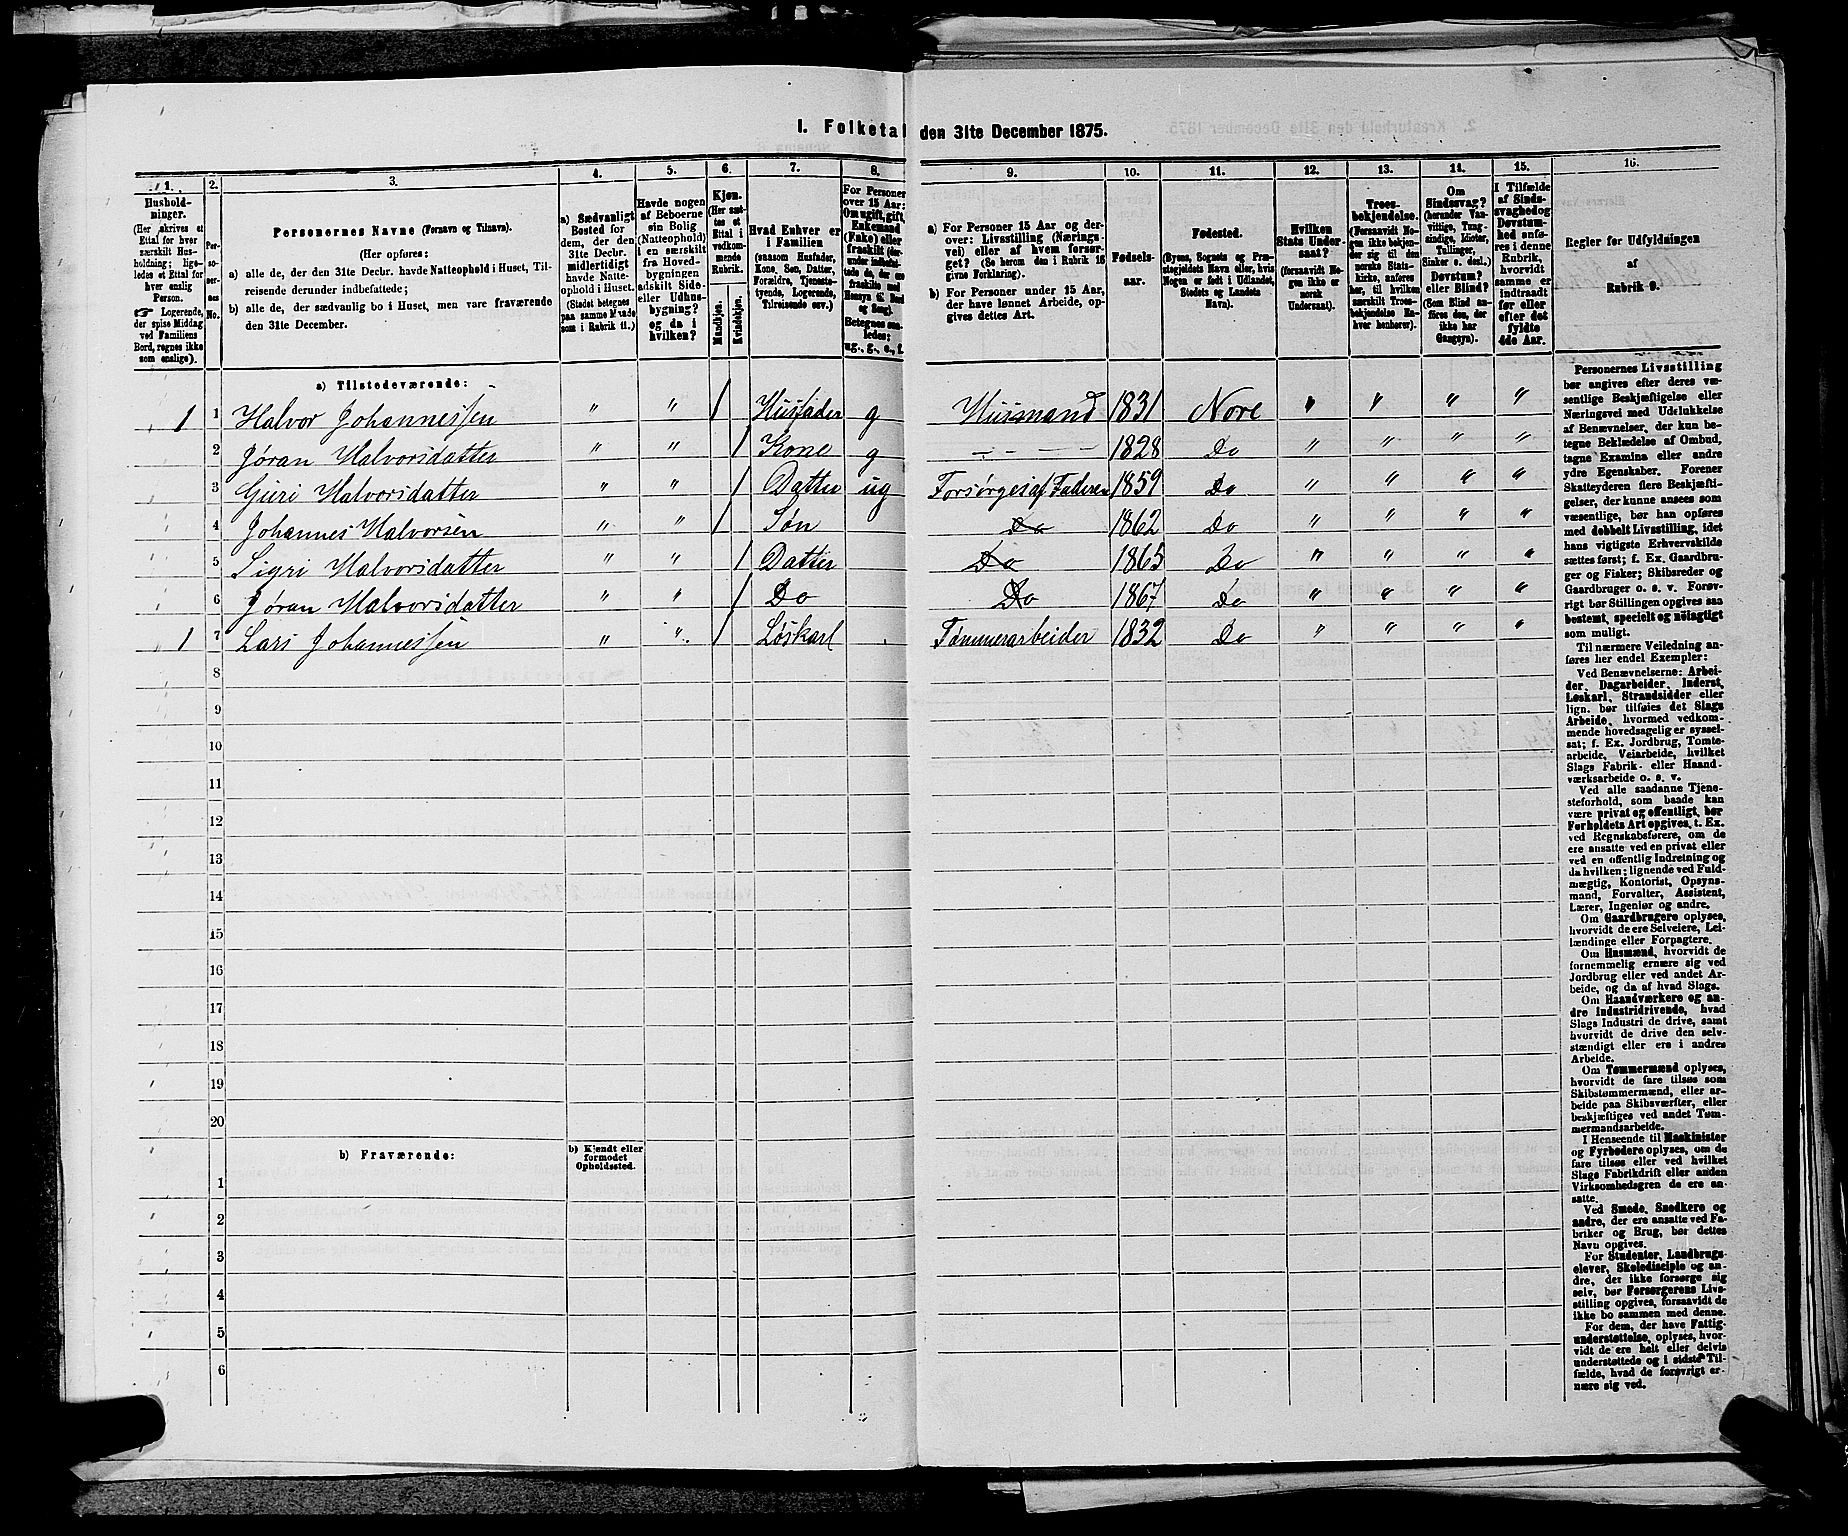 I. Folketal den 31te December 1875.
1. 2. 3. 4. 5. 6. 7. 8. 9. 10. 11. 12. 13. 14. 15. 16.
Hushold-
ninger.
(Her skrives et
Ettal for hver
særskilt Hus-
holdning; lige-
ledes et Ettal for
hver enslig
Person.
☞ Logerende,
der spise Middag
ved Familiens
Bord, regnes ikke
som enslige).
Per-
so-
ner-
nes
No.
Personernes Navne (Fornavn og Tilnavn).
(Her opføres:
a) alle de, der den 31te Decbr. havde Natteophold i Huset, Til-
reisende derunder indbefattede;
b) alle de, der sædvanlig bo i Huset, men vare fraværende
den 31te December.
a) Sædvanligt
Bosted for
dem, der den
31te Decbr.
midlertidigt
havde Natte-
ophold i Huset.
(Stedet betegnes
paa samme Maade
som i Rubrik 11.)
Havde nogen
af Beboerne
sin Bolig
(Natteophold)
i en særskilt
fra Hoved-
bygningen
adskilt Side-
eller Udhus-
bygning?
og da i
hvilken?
Kjøn.
(Her sæt-
tes et
Ettal i
vedkom-
mende
Rubrik.
Mandkjøn.
Kvindekjøn.
Hvad Enhver er
i Familien
(saasom Husfader,
Kone, Søn, Datter,
Forældre, Tjeneste-
tyende, Logerende,
Tilreisende osv.)
For Personer
over 15 Aar:
Om ugift, gift,
Enkemand
(Enke) eller
fraskilt (der-
under indbefat-
tede de, der ere
fraskilte med
Hensyn til Bord
og Seng).
Betegnes saa-
ledes:
ug., g., e., f.
a) For Personer 15 Aar og der-
over: Livsstilling (Nærings-
vei) eller af hvem forsør-
get? (Se herom den i Rubrik 16
givne Forklaring).
b) For Personer under 15 Aar,
der have lønnet Arbeide, op-
gives dettes Art.
Fødsels-
aar.
Fødested.
(Byens, Sognets og Præ-
stegjeldets Navn eller, hvis
Nogen er født i Udlandet,
Stedets og Landets
Navn).
Hvilken
Stats Under-
saat?
(forsaavidt No-
gen ikke er
norsk
Undersaat).
Troes-
bekjendelse.
(Forsaavidt Nogen
ikke bekjen-
der sig til den
norske Stats-
kirke, anføres
her, til hvilken
særskilt Troes-
bekjendelse En-
hver henhører).
Om
Sindssvag?
(herunder Van-
vittige, Tung-
sindige, Idioter,
Tullinger,
Sinker o. desl.).
Døvstum?
eller Blind?
(Som Blind an-
føres den, der
ikke har
Gangsyn).
I Tilfælde
af Sinds-
svaghed og
Døvstum-
hed anfø-
res i denne
Rubrik,
hvorvidt
samme er
indtraadt
før eller
efter det
fyldte
4de Aar.
Regler for Udfyldningen
af
Rubrik 9.
a) Tilstedeværende:
1 1 Halvor Johannessen " " 1 Husfader g Husmand 1831 Nore " " " "
2 Jøran Halvorsdatter " " 1 Kone g - - - - 1828 Do " " " "
3 Guri Halvorsdatter " " 1 Datter ug Forsørges af Faderen 1859 Do " " " "
4 Johannes Halvorsen " " 1 Søn Do 1862 Do " " " "
5 Sigri Halvorsdatter " " 1 Datter Do 1865 Do " " " "
6 Jøran Halvorsdatter " " 1 Do Do 1867 Do " " " "
1 7 Lars Johannessen " " 1 Løskarl Tømmerarbeider 1832 Do " " " "
8
9
10
11
12
13
14
15
16
17
18
19
20
b) Fraværende:
b) Kjendt eller
formodet
Opholdssted.
1
2
3
4
5
6
Personernes Livsstilling
bør angives efter deres væ-
sentlige Beskjæftigelse eller
Næringsvei med Udelukkelse
af Benævnelser, der kun be-
tegne Beklædelse af Ombud,
tagne Examina eller andre
ydre Egenskaber. Forener
Skatteyderen flere Beskjæfti-
gelser, der kunne ansees som
væsentlige, bør han opføres
med dobbelt Livsstilling, idet
hans vigtigste Erhvervskilde
sættes først; f. Ex. Gaardbru-
ger og Fisker; Skibsreder og
Gaardbruger o. s. v. Forøv-
rigt bør Stillingen opgives saa
bestemt, specielt og nøiagtigt
som muligt.
Til nærmere Veiledning an-
føres her endel Exempler:
Ved Benævnelserne: Arbei-
der, Dagarbeider, Inderst,
Løskarl, Strandsidder eller
lign. bør tilføies det Slags
Arbeide, hvormed vedkom-
mende hovedsagelig er syssel-
sat; f. Ex. Jordbrug, Tomte-
arbeide, Veiarbeide, hvilket
Slags Fabrik- eller Haand-
værksarbeide o. s. v.
Ved alle saadanne Tjene-
steforhold, som baade kan
være privat og offentligt, bør
Forholdets Art opgives, t. Ex.
ved Regnskabsførere, om de
ere ansatte ved en privat eller
ved en offentlig Indretning og
da hvilken; lignende ved Fuld-
mægtig, Kontorist, Opsyns-
mand, Forvalter, Assistent,
Lærer, Ingeniør og andre.
Om Gaardbrugere oplyses,
hvorvidt de ere Selveiere, Lei-
lændinge eller Forpagtere.
Om Husmænd, hvorvidt de
fornemmelig ernære sig ved
Jordbrug eller ved andet Ar-
beide, og da af hvad Slags.
Om Haandværkere og an-
dre Industridrivende, hvad
Slags Industri de drive, samt
hvorvidt de drive den selv-
stændigt eller ere i andres
Arbeide.
Om Tømmermænd oplyses,
hvorvidt de fare tilsøs som
Skibstømmermænd, eller ar-
beide paa Skibsværfter, eller
beskjæftiges ved andet Tøm-
mermandsarbeide.
I Henseende til Maskinister
og Fyrbødere oplyses, om de
fare tilsøs eller ved hvilket
Slags Fabrikdrift eller anden
Virksomhedsgren de ere an-
satte.
Ved Smede, Snedkere og
andre, der ere ansatte ved Fa-
briker og Brug, bør dettes
Navn opgives.
For Studenter, Landbrugs-
elever, Skoledisciple og an-
dre, der ikke forsørge sig
selv, bør Forsørgerens Livs-
stilling opgives, forsaavidt de
ikke bo sammen med denne.
For dem, der have Fattig-
understøttelse, oplyses, hvor-
vidt de ere helt eller delvis
understøttede og i sidste Til-
fælde, hvad de forøvrigt er-
nære sig ved.